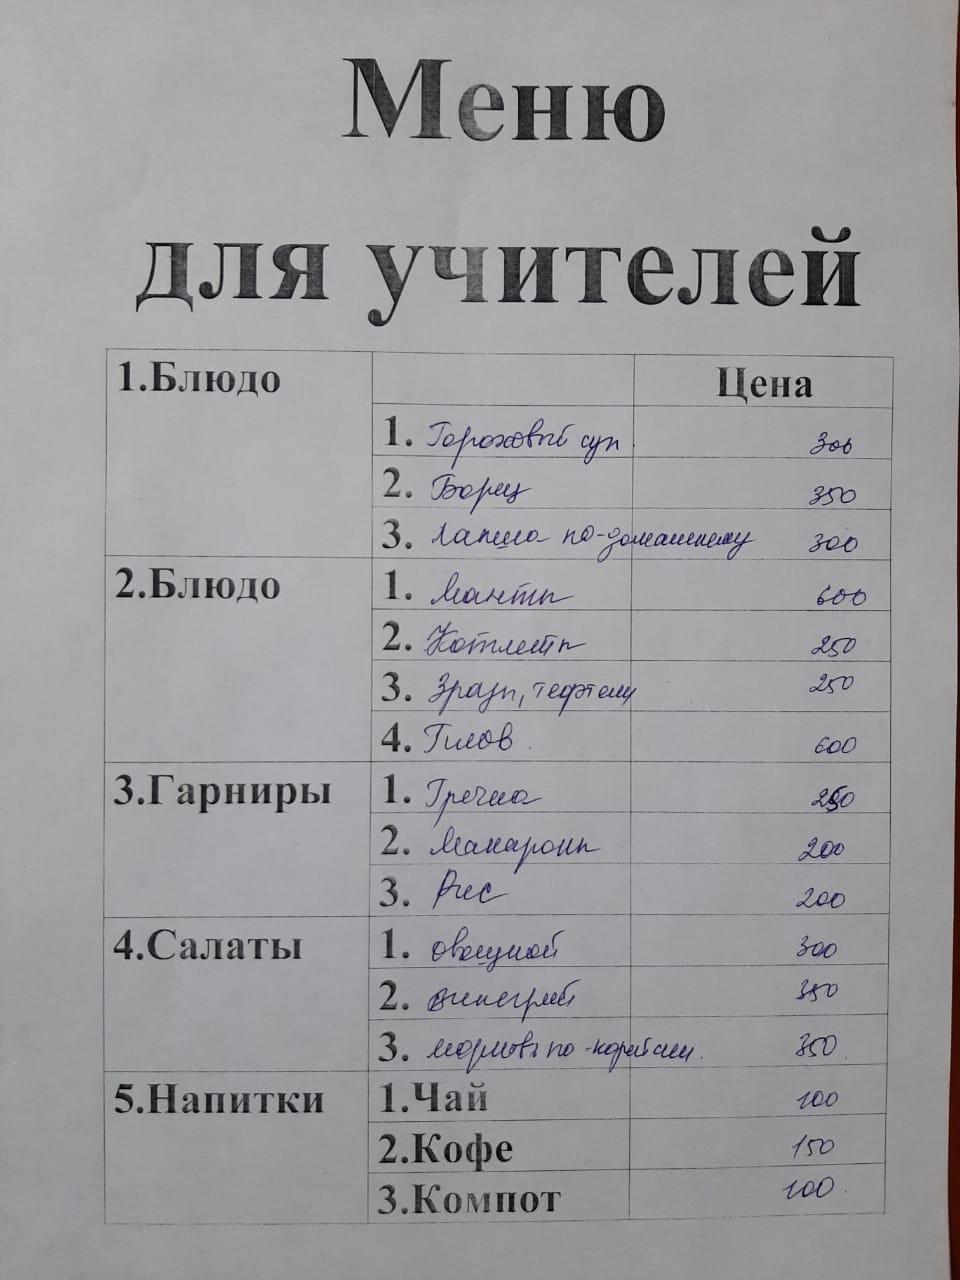 Меню
для учителей
1.Блюдо Цена
1. Гороховый суп 300
2. Борщ 350
3. Лапша по-домашнему 300
2.Блюдо 1. Манты 600
2. Котлеты 250
3. Зразы, тефтели 250
4. Плов 600
3.Гарниры 1. Гречка
2. Макароны 200
3. Рис 200
4.Салаты 1. овощной 300
2. винегрет 350
3. морковь по-корейски. 350
5.Напитки 1.Чай 100
2.Кофе 150
3.Компот 100